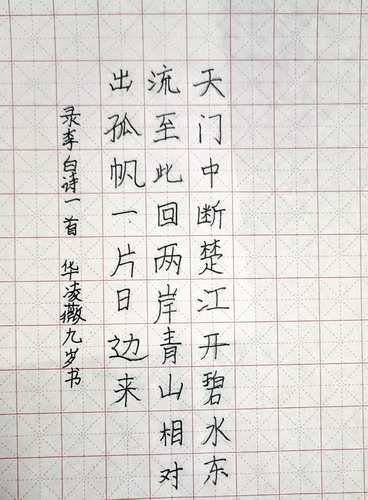 天门中断楚江开碧水东
流至此回两岸青山相对
出孤帆一片日边来
录李白诗一首 华凌薇九岁书